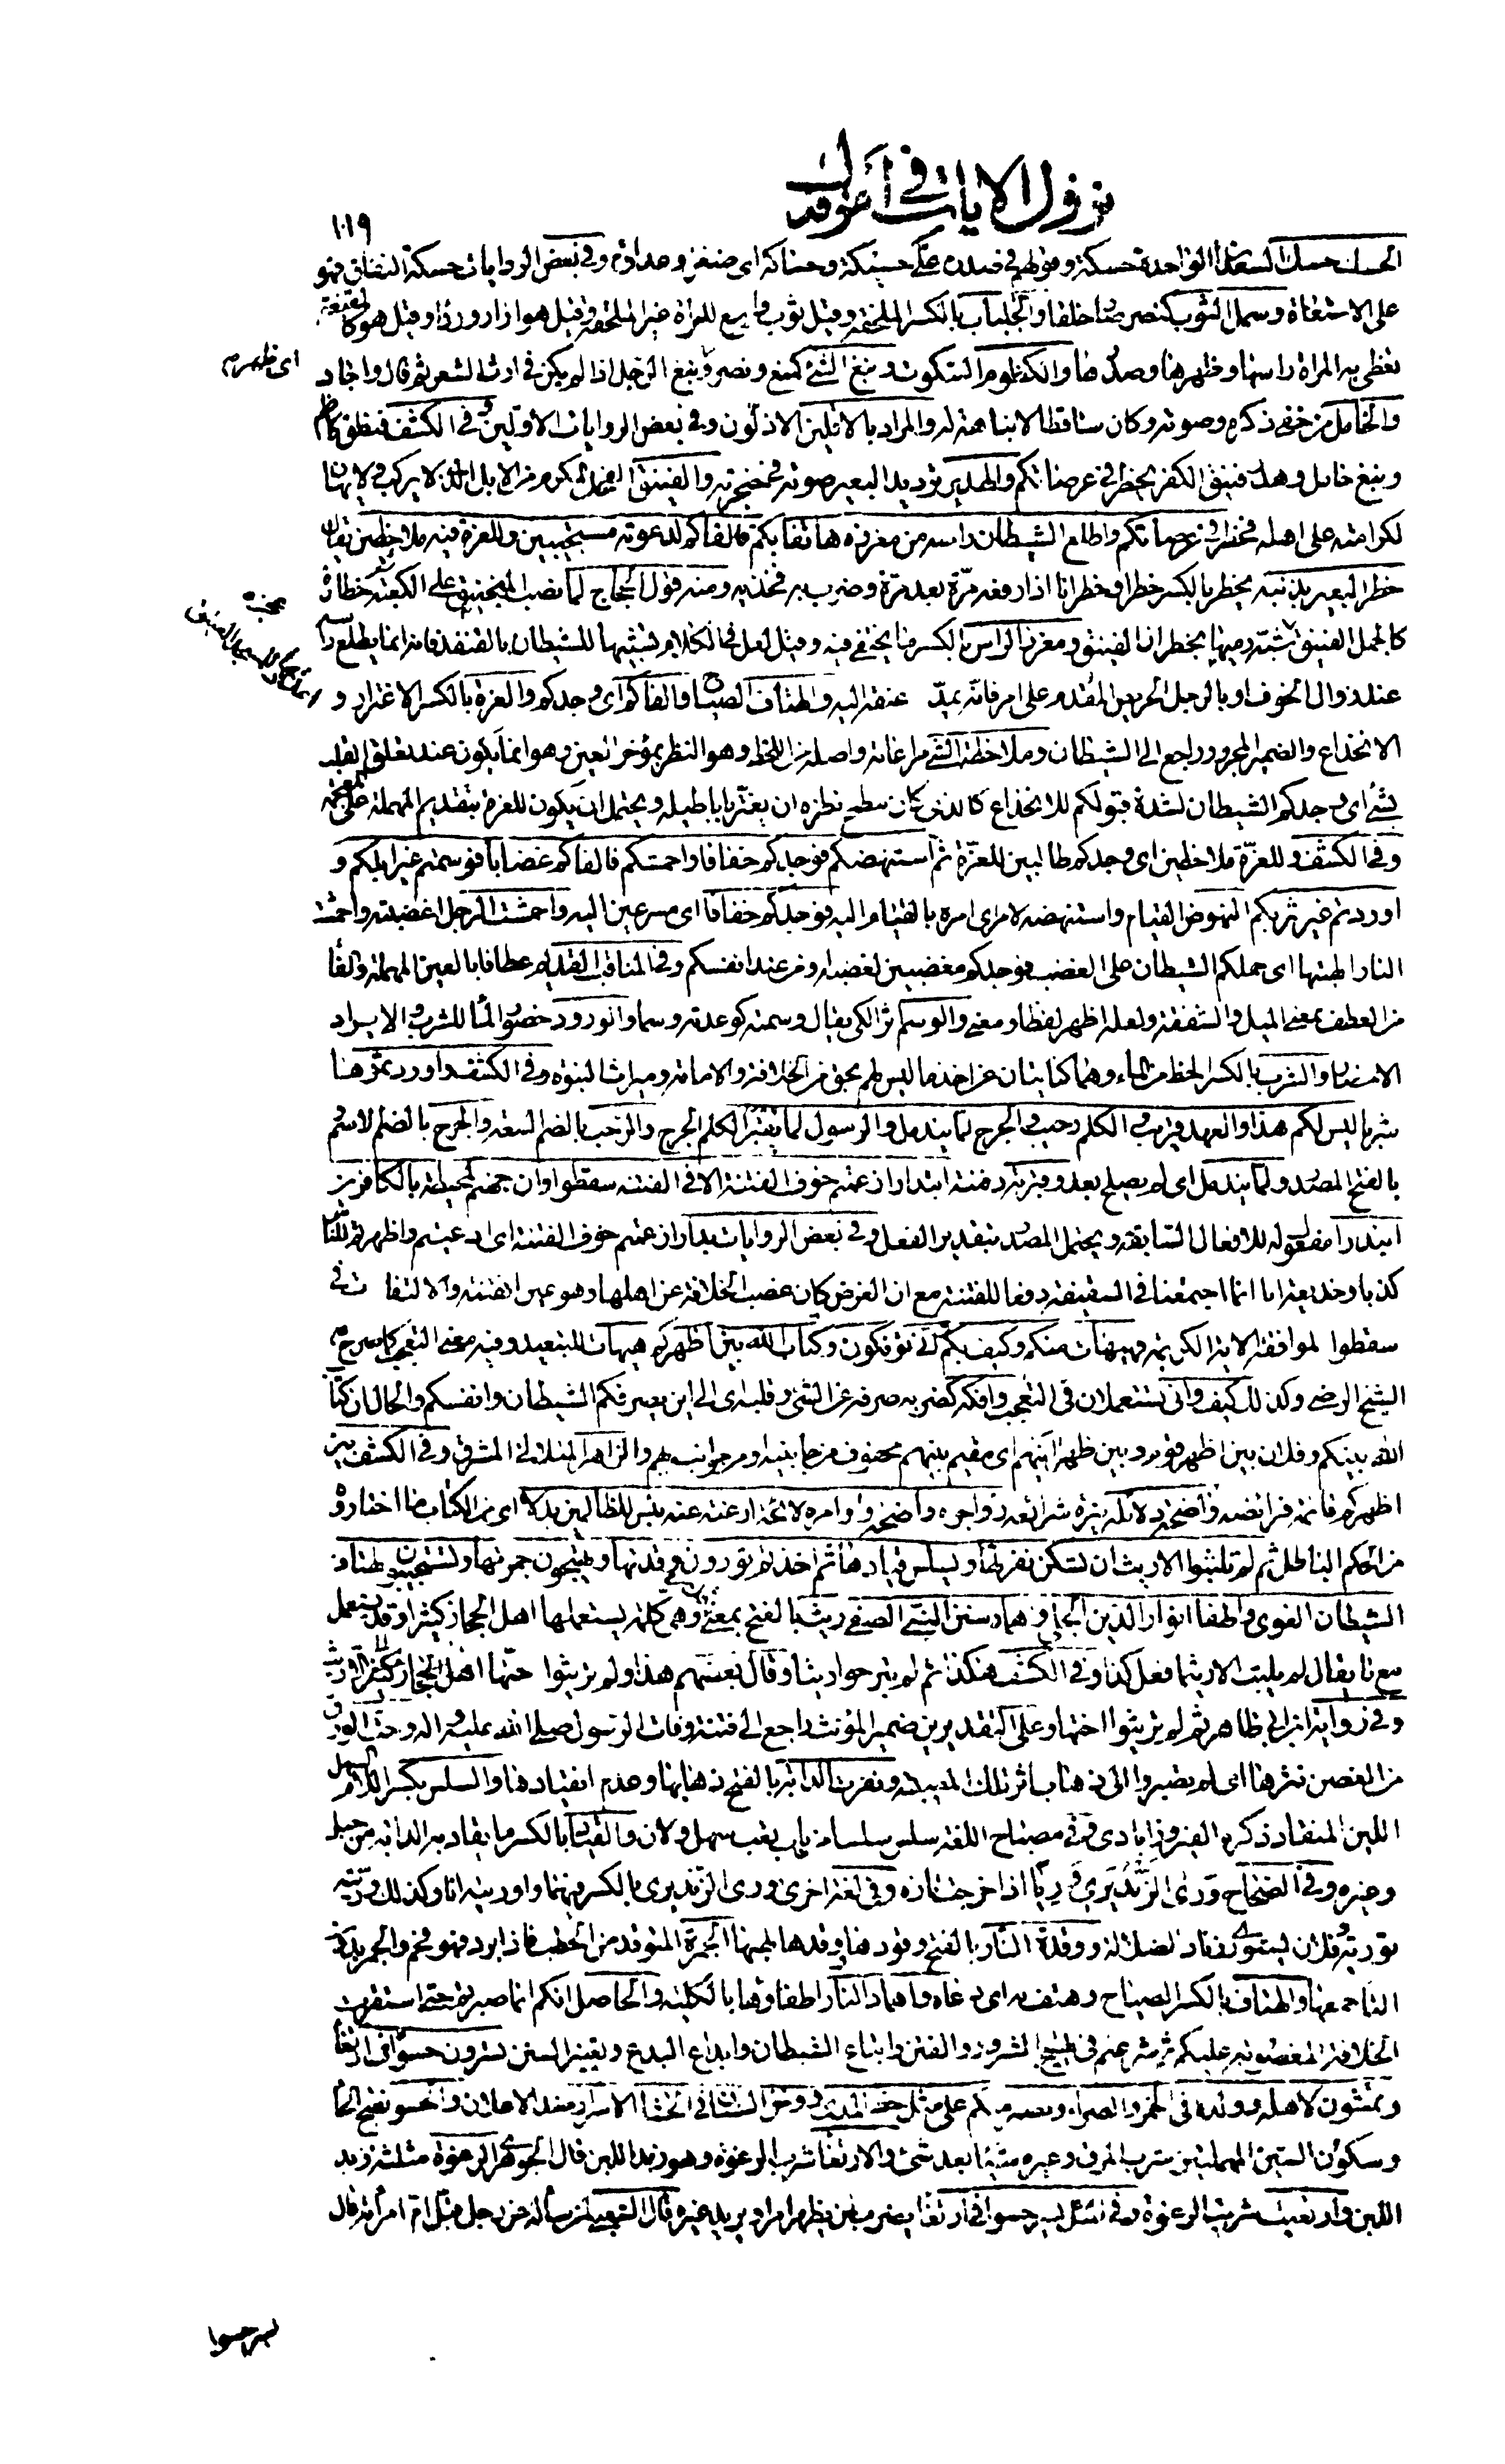 نزول الايات في امر فدك
١١٩
الحسك حسك السعدان الواحدة حسكة وقولهم في صدره علي حسيكة وحساكة اى ضغن وعداوة وفي بعض الروايات حسكة النفاق فهو
على الاستعارة وسمل الثوب كنصر صار خلقا والجلباب بالكسر الملحفة وقيل ثوب واسع للمراة غير الملحفة وقيل هو ازار ورداء وقيل هو كالمقنعة
تغطى به المراة راسها وظهرها وصدرها والكظوم السكوت ونبغ الشئ كمنع ونصر ونبغ الرجل اذا لم يكن في ارث الشعر ثم قال واجاد
اى ظهر م
والخامل من خفي ذكره وصوته وكان ساقطا لا نباهة له والمراد بالاقلين الاذلون وفي بعض الروايات الاولين وفي الكشف فنطق كاظم
ونبغ خامل وهدر فنيق الكفر يخطر في عرصاتكم والهدير ترديد البعير صوته في حنجرته والفنيق الفحل المكرم من الابل الذى لا يركب ولا يهان
لكرامته على اهله فخطر في عرصاتكم واطلع الشيطان راسه من مغرزه هاتفا بكم فالفاكم لدعوته مستجيبين وللغرة فيه ملاحظين يقال
خطر البعير بذنبه يخطر بالكسر خطرا وخطرانا اذا رفعه مرة بعد مرة وضرب به فخذيه ومنه قول الحجاج لما نصب المنجنيق على الكعبة خطارة
كالجمل الفنيق شبه رميها بخطران الفنيق ومغرز الراس بالكسر ما يختفى فيه وقيل لعل في الكلام تشبيها للشيطان بالقنفذ فانه انما يطلع راسه
عند زوال الخوف او بالرجل الحريص المقدم على امر فانه يمد عنقه اليه والهتاف الصياح والفاكم اى وجدكم والغرة بالكسر الاغترار و
الانخداع والضمير المجرور راجع الى الشيطان وملاحظة الشئ مراعاته واصله من اللحظ وهو النظر بمؤخر العين وهو انما يكون عند تعلق القلب
بشئ اى وجدكم الشيطان لشدة قبولكم للانخداع كالذى كان مطمح نظره ان يغتر باباطيله ويحتمل ان يكون للعزة بتقديم المهملة على المعجمة
وفي الكشف وللعزة ملاحظين اى وجدكم طالبين للعزة ثم استنهضكم فوجدكم خفافا واحمشكم فالفاكم غضابا فوسمتم غير ابلكم و
اوردتم غير شربكم النهوض القيام واستنهضه لامر اى امره بالقيام اليه فوجدكم خفافا اى مسرعين اليه واحمشت الرجل اغضبته واحمشت
النار الهبتها اى حملكم الشيطان على الغضب فوجدكم مغضبين لغضبه او من عند انفسكم وفي المناقب القديم عطافا بالعين المهملة والفاء
من العطف بمعنى الميل والشفقة ولعله اظهر لفظا ومعنى والوسم اثر الكى يقال وسمته كوعدته وسما والورود حضور الماء للشرب والايراد
الاحضار والشرب بالكسر الحظ من الماء وهما كنايتان عن اخذ ما ليس لهم بحق من الخلافة والامامة وميراث النبوة وفي الكشف واوردتموها
شربا ليس لكم هذا والعهد قريب والكلم رحيب والجرح لما يندمل والرسول لما يقبر الكلم الجرح والرحب بالضم السعة والجرح بالضم الاسم
بالفتح المصدر ولما يندمل اى لم يصلح بعد وقبرته دفنته ابتدارا زعمتم خوف الفتنة الا في الفتنة سقطوا وان جهنم لمحيطة بالكافرين
ابتدارا مفعول له للافعال السابقة ويحتمل المصدر بتقدير الفعل وفي بعض الروايات بدارا زعمتم خوف الفتنة اى ادعيتم واظهرتم للناس
كذبا وخديعة انا انما اجتمعنا في السقيفة دفعا للفتنة مع ان الغرض كان غصب الخلافة عن اهلها وهو عين الفتنة والالتفات في
سقطوا لموافقة الاية الكريمة فهيهات منكم وكيف بكم وانى تؤفكون وكتاب الله بين اظهركم هيهات للتبعيد وفيه معنى التعجب كما صرح به
الشيخ الرضى وكذلك كيف وانى تستعملان في التعجب وافكه كضربه صرفه عن الشئ وقلبه اى الى اين يصرفكم الشيطان وانفسكم والحال ان كتاب
الله بينكم وفلان بين اظهر قوم وبين ظهرانيهم اى مقيم بينهم محفوف من جانبيه او من جوانبه بهم والزاهر المتلالئ المشرق وفي الكشف بين
اظهركم قائمة فرائضه واضحة دلائله نيرة شرائعه زواجره واضحة واوامره لائحة ارغبة عنه بئس للظالمين بدلا اى من الكتاب ما اختاروه
من الحكم الباطل ثم لم تلبثوا الا ريث ان تسكن نفرتها ويسلس قيادها ثم اخذتم تورون وقدتها وتهيجون جمرتها وتستجيبون لهتاف
الشيطان الغوى واطفاء انوار الدين الجلى واهماد سنن النبى الصفى ريث بالفتح بمعنى قدر وهى كلمة يستعملها اهل الحجاز كثيرا وقد يستعمل
مع ما يقال لم يلبث الا ريثما فعل كذا وفي الكشف هكذا ثم لم تبرحوا ريثا وقال بعضهم هذا ولم تريثوا حتها
وفي رواية ابن ابى طاهر ثم لم تريثوا اختها وعلى التقديرين ضمير المؤنث راجع الى فتنة وفات الرسول صلى الله عليه واله وحت الورق
من الغصن نثرها اى لم تصبروا الى ذهاب اثر تلك المصيبة ونفرت الدابة بالفتح ذهابها وعدم انقيادها والسلس بكسر اللام السهل
اللين المنقاد ذكره الفيروزابادى وفي مصباح اللغة سلس سلسا من باب تعب سهل ولان والقياد بالكسر ما يقاد به الدابة من حبل
وغيره وفي الصحاح ورى الزند يرى وريا اذا خرجت ناره وفي لغة اخرى ورى الزند يرى بالكسر فيهما واوريته انا وكذلك وريته
تورية وفلان يستورى زناد الضلالة ووقدة النار بالفتح وقودها ووقدها لهبها الجمرة المتوقد من الحطب فاذا برد فهو فحم والجمر بدون
التا جمعها والهتاف بالكسر الصياح وهتف به اى دعاه واهماد النار اطفاؤها بالكلية والحاصل انكم انما صبرتم حتى استقرت
الخلافة المغصوبة عليكم ثم شرعتم في تهييج الشرور والفتن واتباع الشيطان وابداع البدع وتغيير السنن تسرون حسوا في ارتغاء
وتمشون لاهله وولده في الخمر والضراء ونصبر منكم على مثل حز المدى ووخز السنان في الحشا الاسرار ضد الاعلان والحسو بفتح الحاء
وسكون السين المهملتين شرب المرق وغيره شيئا بعد شئ والارتغاء شرب الرغوة وهو زبد اللبن قال الجوهرى الرغوة مثلثة زبد
اللبن وارتغيت شربت الرغوة وفي المثل يسر حسوا في ارتغاء يضرب لمن يظهر امرا ويريد غيره قال الشعبى لمن ساله عن رجل قبل ام امراته قال
يسر حسوا